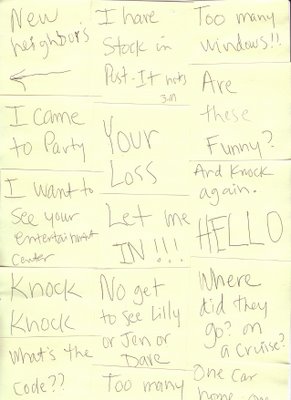 New
neighbors
I came
to Party
I want to
See your
entertainment
Center
Knock
Knock
What's the
Code??
I have
Stock in
Post-It nots
3M
Your
Loss
Let me
IN!!!
No get
to see Lilly
or Jen or
Dave
Too many
Too many
windows!!
Are
these
Funny?
And Knock
again.
HELLO
Where
did they
go? on
a Cruise?
One Car
home